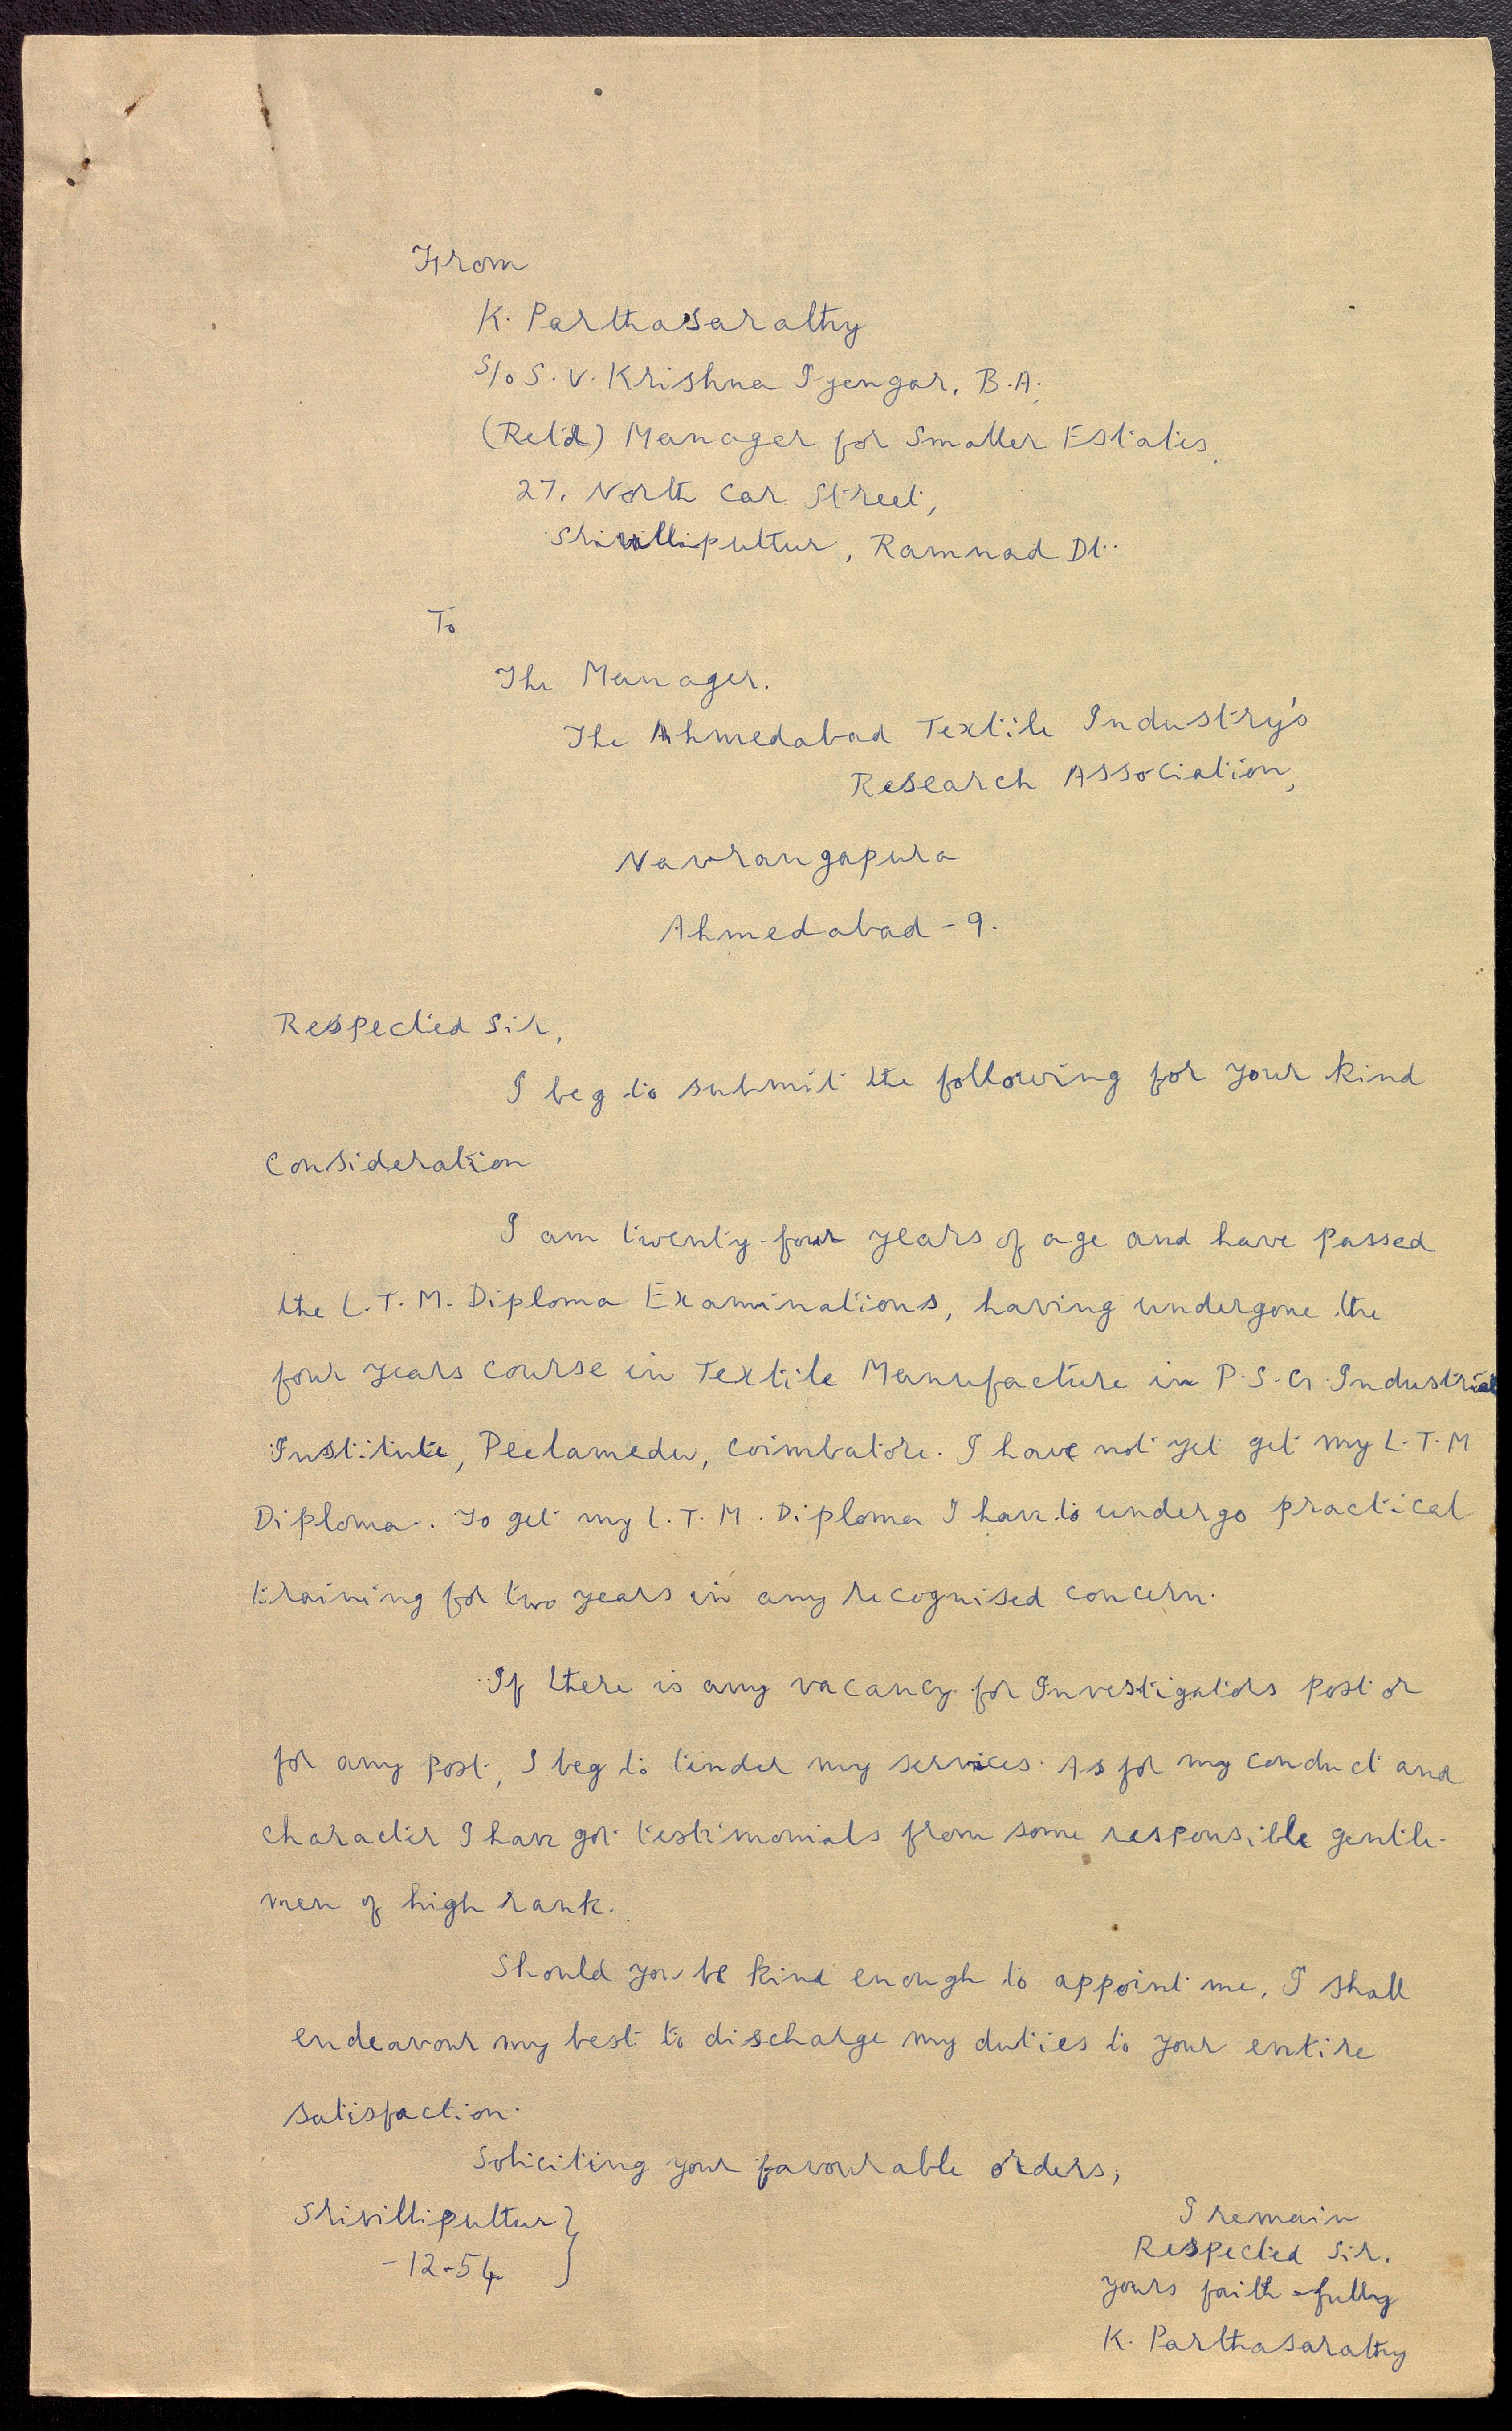 From
K. Parthasarathy
S/o S. V. Krishna Iyengar, B.A.,
(Retd) Manager for Smaller Estates,
27, North Car Street,
Srivilliputtur, Ramnad Dt.
To
The Manager.
The Ahmedabad Textile Industry's
Research Association,
Navrangapura
Ahmedabad - 9.
Respected Sir,
I beg to submit the following for your kind
consideration
I am twenty-four years of age and have passed
the L.T.M. Diploma Examinations, having undergone the
four years course in Textile Manufacture in P.S.G. Industrial
Institute, Peelamedu, Coimbatore. I have not yet get my L.T.M
Diploma. To get my L.T.M. Diploma I have to undergo practical
training for two years in any recognised concern.
If there is any vacancy for Investigators post or
for any post, I beg to tender my services. As for my conduct and
character I have got testimonials from some responsible gentle-
men of high rank.
Should you be kind enough to appoint me, I shall
endeavour my best to discharge my duties to your entire
satisfaction.
Soliciting your favourable orders,
Srivilliputtur }
-12-54 }
I remain
Respected Sir.
Yours faith-fully
K. Parthasarathy